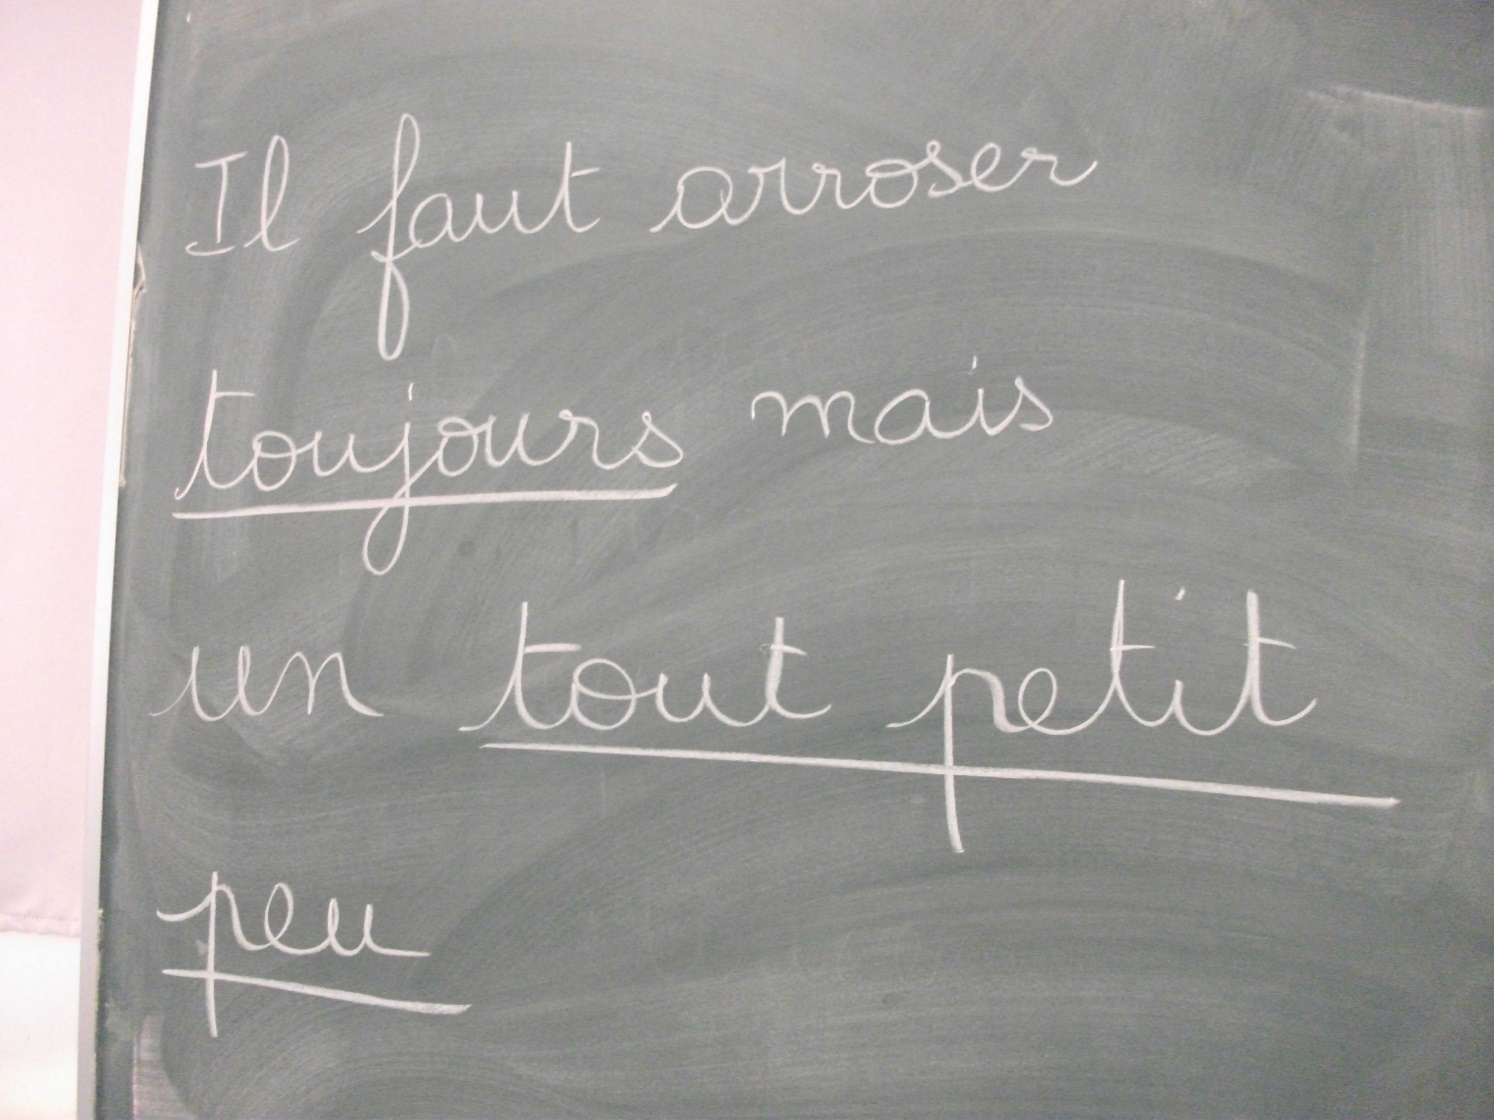 Il faut arroser
toujours mais
un tout petit
peu